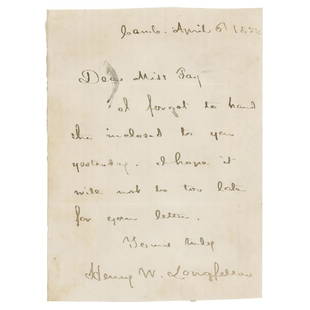 Camb. April 6 18
Dear Miss Fay
I forgot to hand
the inclosed to you
yesterday. I hope it
will not be too late
for your letter.
Yours truly
Henry W. Longfellow